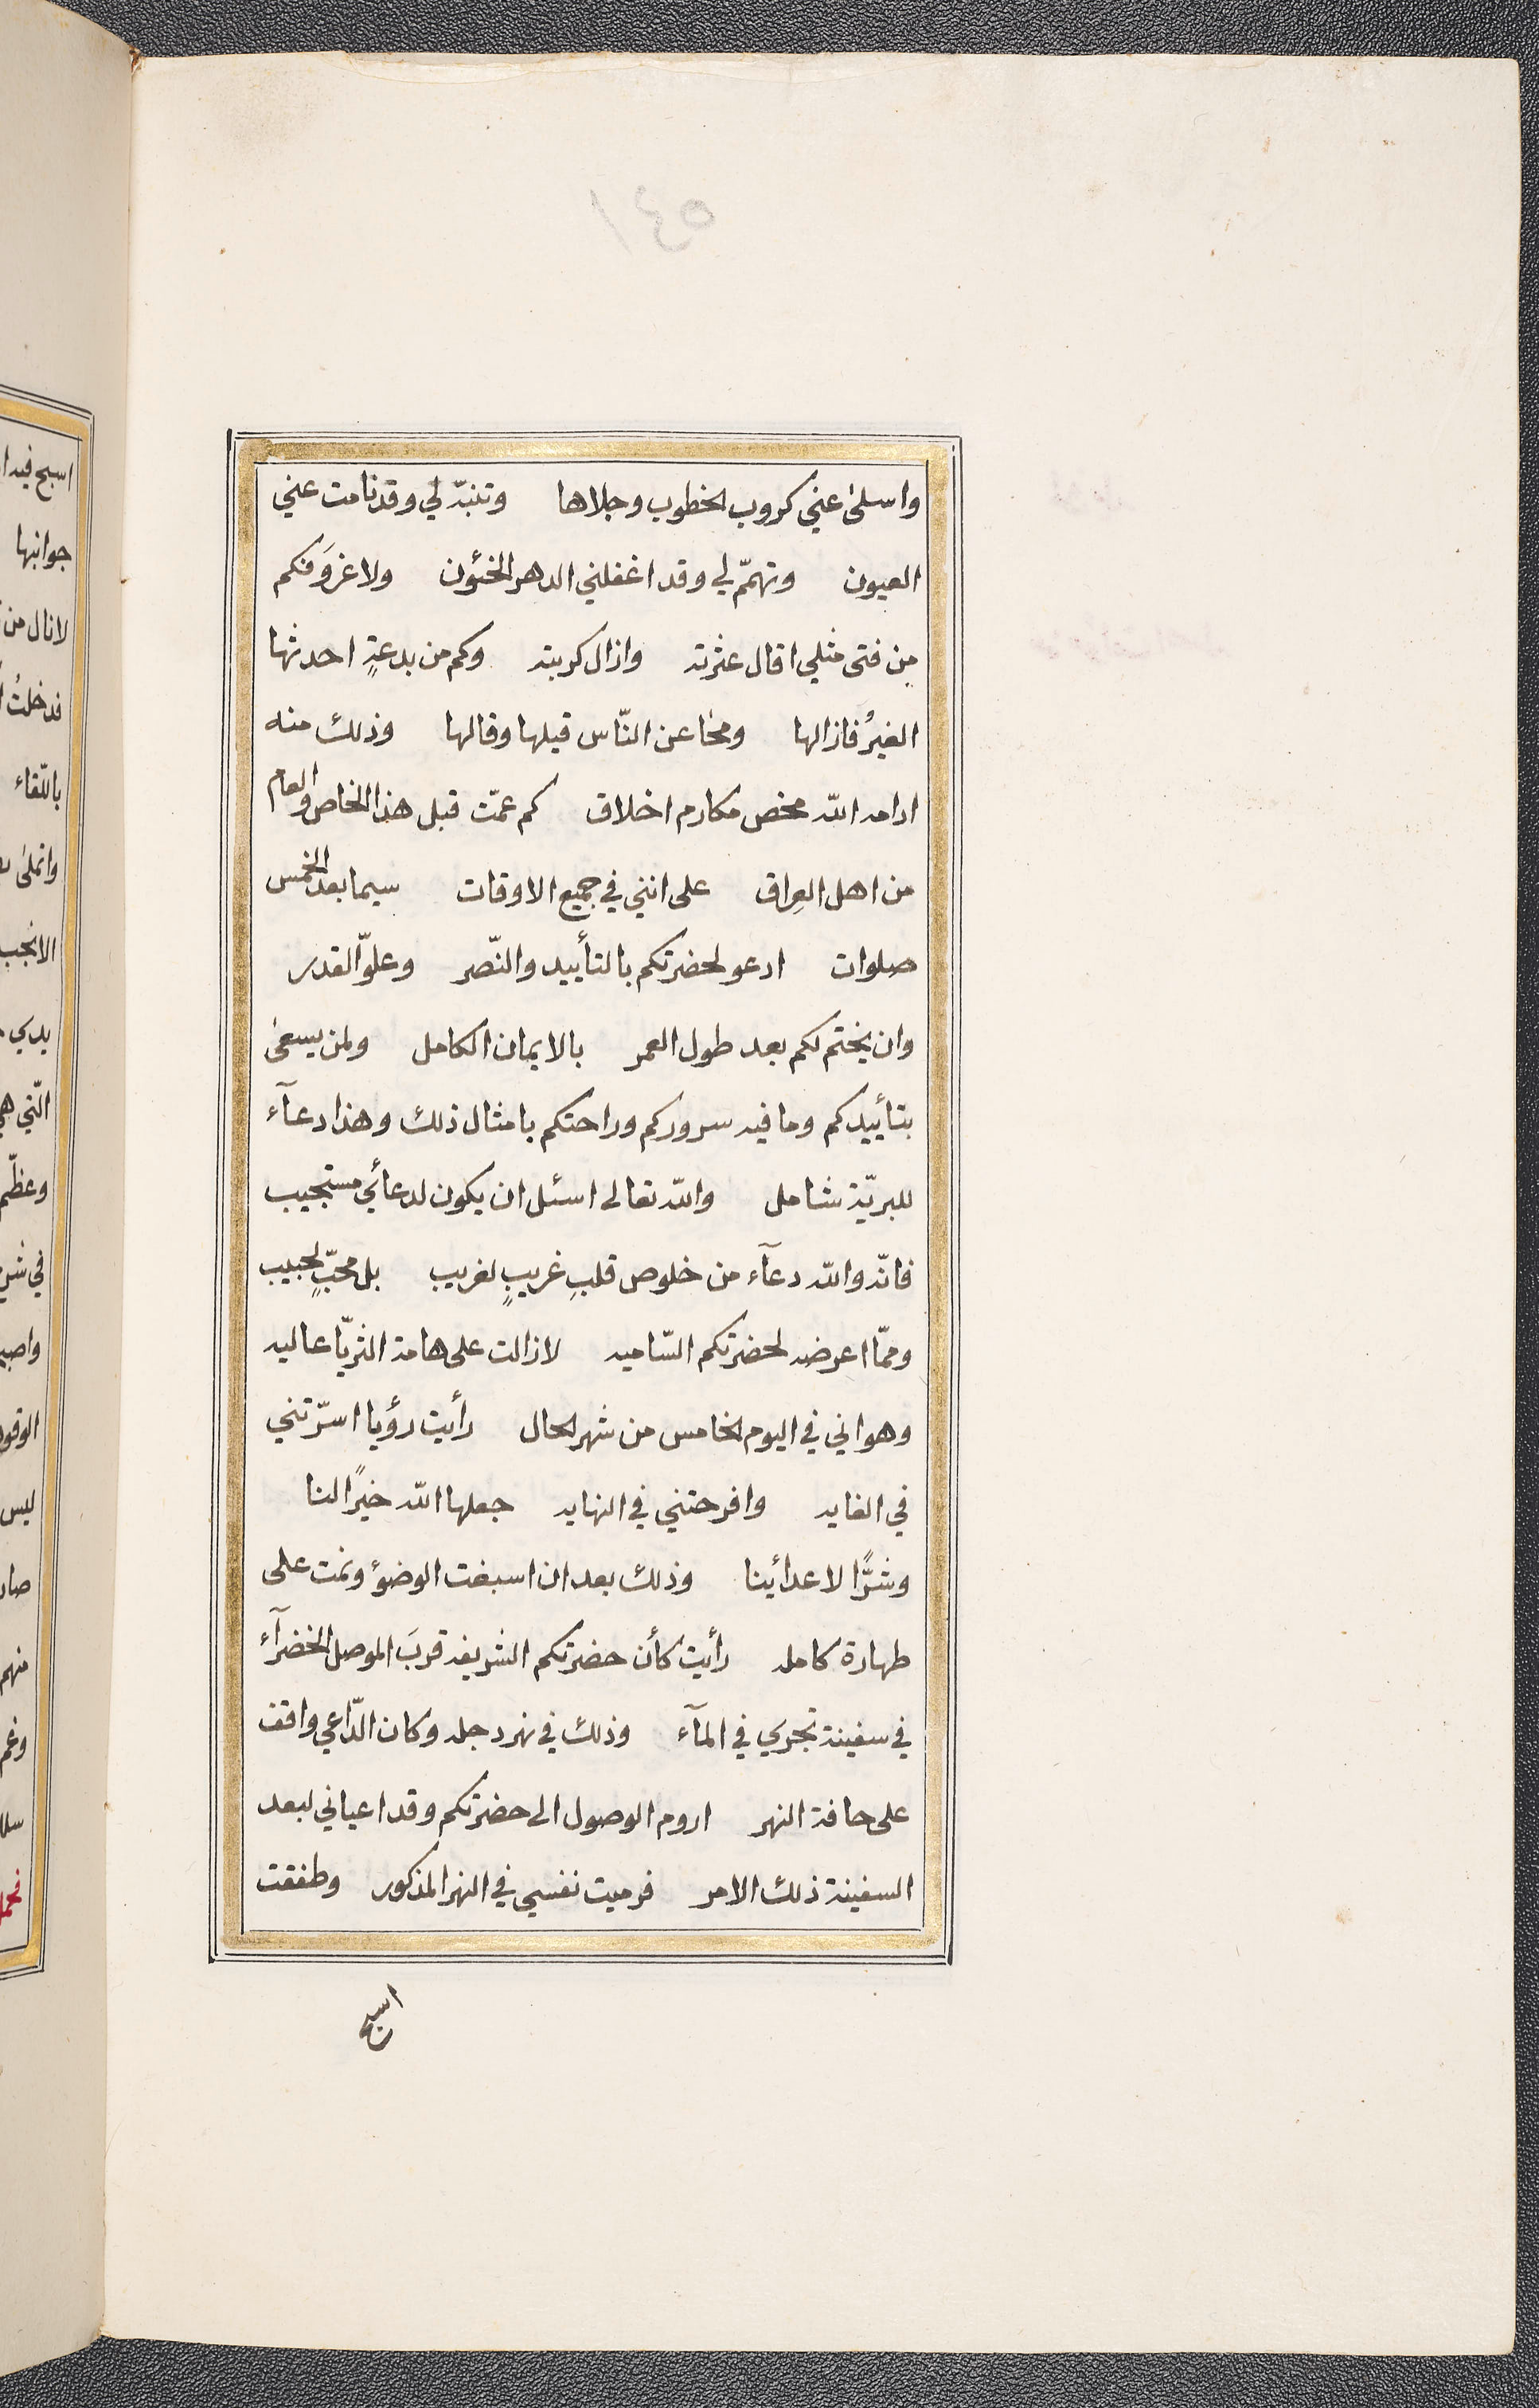 واسلىٰ عني كروب الخطوب وجلاها وتنبّه لي وقد نامت عني
العيون وتهمّم لي وقد اغفلني الدهر الخئون ولا غروَ فكم
مِن فتى مثلي اقال عثرته وازال كربته وكم من بدعةٍ احدثها
الغيرُ فازالها ومحٰا عن النّاس قيلها وقالها وذلك منه
ادامه الله محض مكارم اخلاق كم عمّت قبل هذا الخاص والعام
من اهل العِراق على انني في جميع الاوقات سيما بعد الخمس
صلوات ادعو لحضرتكم بالتأييد والنّصر وعلوّ القدر
وان يختم لكم بعد طول العمر بالايمان الكامل ولمن يسعىٰ
بتأييدكم وما فيه سروركم وراحتكم بامثال ذلك وهذا دعآء
للبريّة شامل والله تعالى اسئل ان يكون لدعائي مستجيب
فانّه والله دعآء من خلوص قلبِ غريبٍ لغريب بل محبٍّ لحبيب
وممّا اعرضه لحضرتكم السّاميه لازالت على هامة الثريّا عاليه
وهو اني في اليوم الخامس من شهر الحال رأيت رؤيا اسرّتني
في الغايه وافرحتني في النهايه جعلها الله خيرًا لنا
وشرًّا لاعدائينا وذلك بعد ان اسبغت الوضوٴ ونمت على
طهارة كامله رأيت كأن حضرتكم الشريفه قربَ الموصل الخضرآء
في سفينة تجري في المآء وذلك في نهر دجله وكان الدّاعي واقف
على حافة النهر اروم الوصول الى حضرتكم وقد اعياني لبعد
السفينة ذلك الامر فرميت نفسي في النهر المذكور وطفقت
اسبح
اسبح فيه ا
جوانبها
لانال من
فدخلتُ
باللّقاء
الانجب
يدي
الّتي هي
وعظّم
ليس
منهم